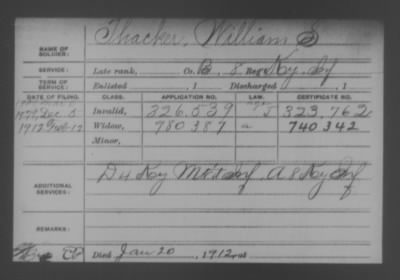 Thacker, William S
NAME OF SOLDIER:
SERVICE: Late rank, Co. B, 8 Reg't Ky. Inf
TERM OF SERVICE: Enlisted , 1 Discharged , 1
DATE OF FILING. CLASS. APPLICATION NO. LAW. CERTIFICATE NO.
1879, Dec. 5 Invalid, 326.539 323.762
1912 Feb-12 Widow, 780387 a 740342
Minor,
ADDITIONAL SERVICES: D 4 Ky Mt'd Inf, A 8 Ky Inf
REMARKS:
Died Jan 20, 1912, at